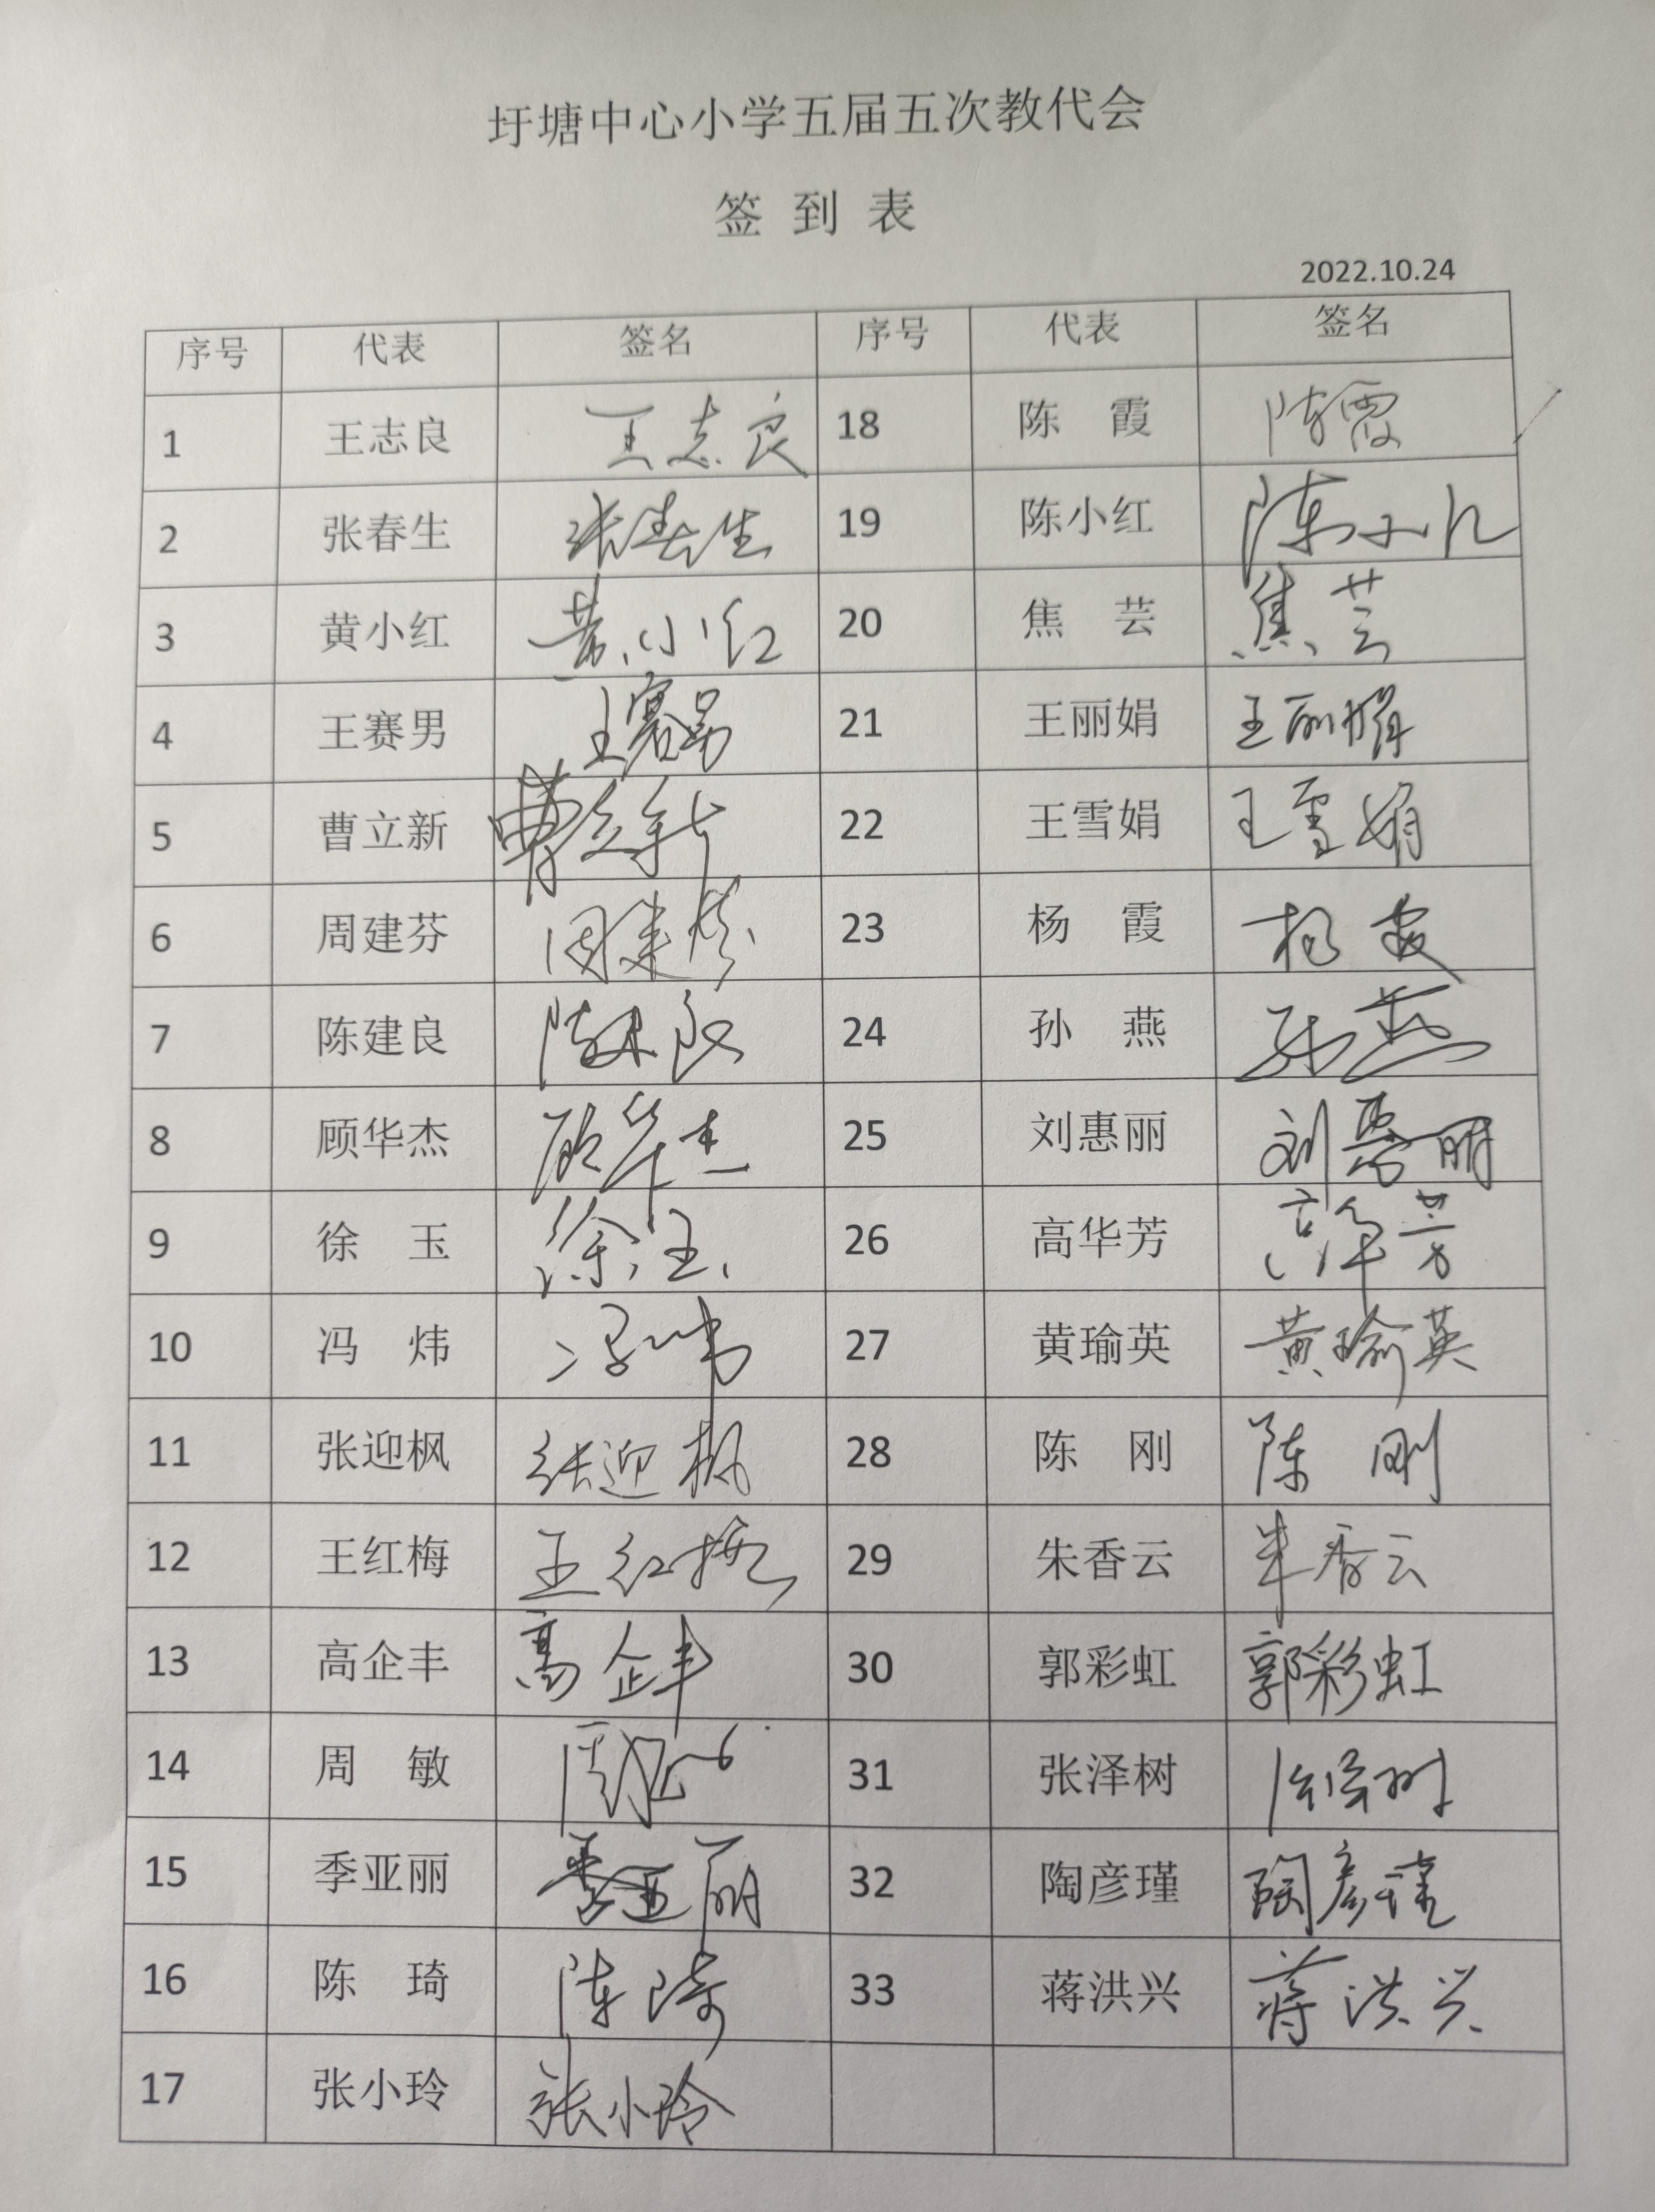 圩塘中心小学五届五次教代会
签 到 表
2022.10.24
序号 代表 签名 序号 代表 签名
1 王志良 王志良 18 陈 霞 陈霞
2 张春生 张春生 19 陈小红 陈小红
3 黄小红 黄小红 20 焦 芸 焦芸
4 王赛男 王赛男 21 王丽娟 王丽娟
5 曹立新 曹立新 22 王雪娟 王雪娟
6 周建芬 周建芬 23 杨 霞 杨霞
7 陈建良 陈建良 24 孙 燕 孙燕
8 顾华杰 顾华杰 25 刘惠丽 刘惠丽
9 徐 玉 徐玉 26 高华芳 高华芳
10 冯 炜 冯炜 27 黄瑜英 黄瑜英
11 张迎枫 张迎枫 28 陈 刚 陈刚
12 王红梅 王红梅 29 朱香云 朱香云
13 高企丰 高企丰 30 郭彩虹 郭彩虹
14 周 敏 周敏 31 张泽树 张泽树
15 季亚丽 季亚丽 32 陶彦瑾 陶彦瑾
16 陈 琦 陈琦 33 蒋洪兴 蒋洪兴
17 张小玲 张小玲